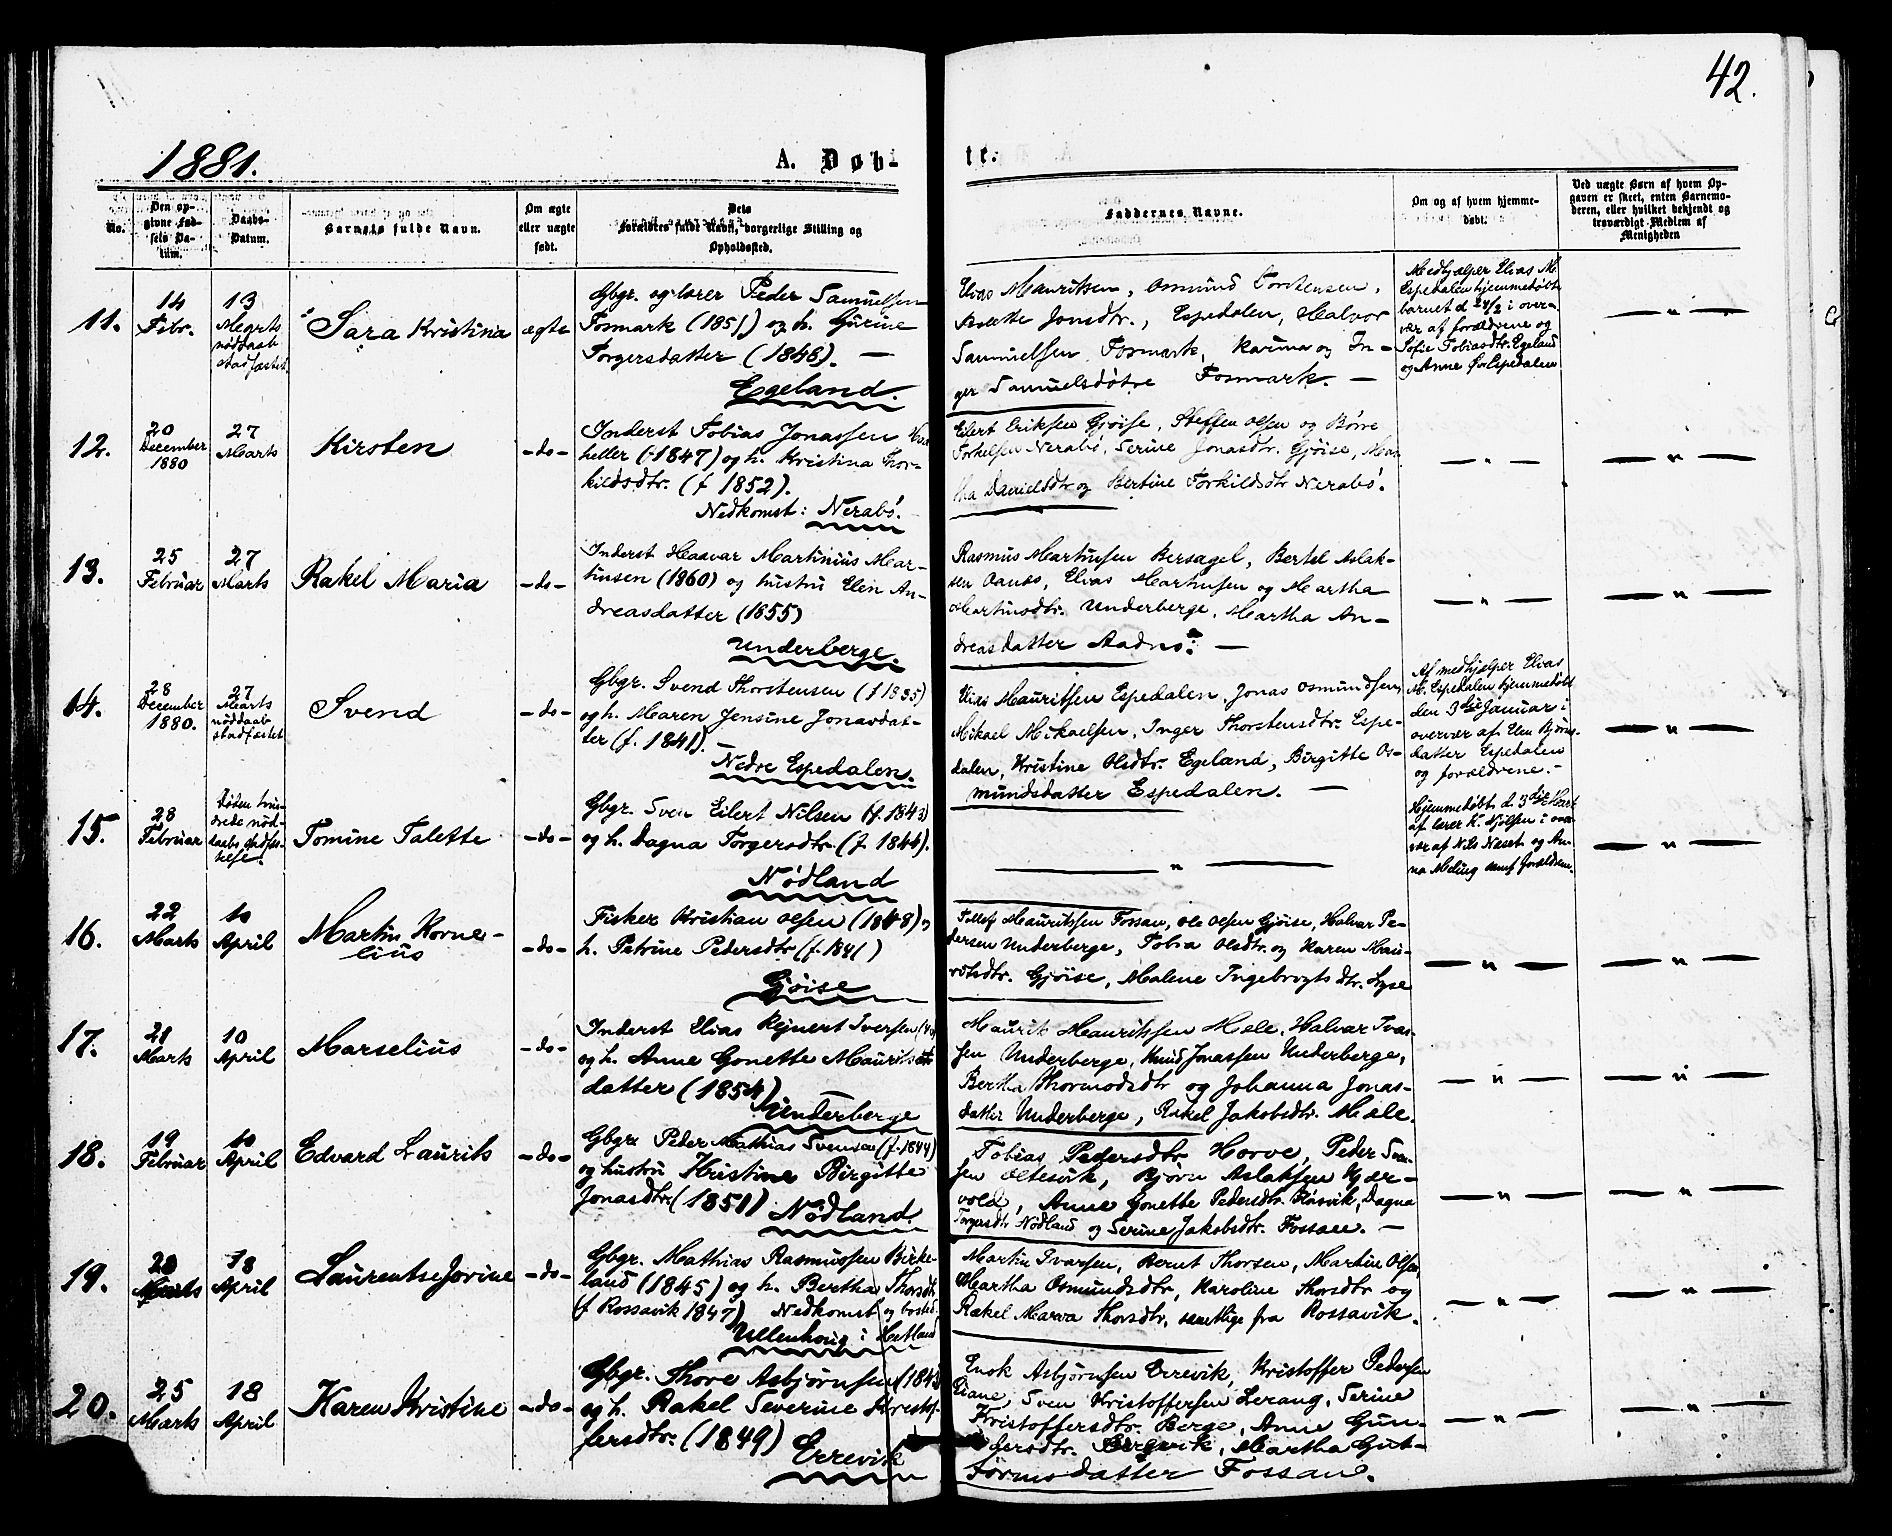 42.
1881.
A. Døb-
te.
No.
Den opgivne Fødsels Datum.
Daabs-Datum.
Barnets fulde Navn.
Om ægte eller uægte født.
Dets Forældres fulde Navn, borgerlige Stilling og Opholdssted.
Faddernes Navne.
Om og af hvem hjemmedøbt.
Ved uægte Børn af hvem Opgaven er skeet, enten Barnemoderen, eller hvilket bekjendt og troværdigt Medlem af Menigheden
11.
14 Febr.
13 Marts nöddaab stadfæstet
Sara Kristina
ægte
Gbgr. og lærer Peder Samuelsen
Fosmark (1851) og h. Gurine
Torgersdatter (1848). —
Egeland.
Elias Mauritsen, Osmund Torstensen,
Bolette Jonsdtr., Espedalen, Halvor
Samuelsen Fosmark, Karina og In-
ger Samuelsdötre Fosmark. —
Medhjælper Elias M.
Espedalen hjemmedöbt
barnet d 24/2 i over-
vær af forældrene og
Sofie Tobiasdtr. Egeland
og Anne Espedalen
— " —
12.
20 December 1880
27 Marts
Kirsten
- do -
Inderst Tobias Jonassen
heller (f 1847) og h. Kristina Thor-
kildsdtr. (f 1852).
Nedkomst: Nerabö.
Eilert Eriksen Gjöise, Steffen Olsen og Börre
Torkelsen Nerabö, Serine Jonasdtr. Gjöise, Mar-
tha Danielsdtr og Bertine Torkildsdtr Nerabö.
— " —
— " —
13.
25 Februar
27 Marts
Rakel Maria
- do -
Inderst Haavar Martinius Mar-
tinsen (1860) og hustru Elen An-
dreasdatter (1855)
Underberge.
Rasmus Martinsen Bersagel, Bertel Aslak-
sen Oanes, Elias Martinsen og Martha
Martinsdtr. Underberge, Martha An-
dreasdatter Aadnö. —
— " —
— " —
14.
28 December 1880.
27 Marts nöddaab stadfæstet
Svend
- do -
Gbgr. Svend Thorstensen (f 1835)
og h. Maren Jensine Jonasdat-
ter (f. 1841). —
Nedre Espedalen.
Elias Mauritsen Espedalen, Jonas Osmundsen,
Mikael Mikaelsen, Inger Thorstensdtr. Espe-
dalen, Kristine Olsdtr. Egeland, Birgitte Os-
mundsdatter Espedalen. —
Af medhjælper Elias
M. Espedalen hjemmedöbt
den 3die Januar i
overvær af Elen Björns-
datter Espedalen
og forældrene. -
— " —
15.
28 Februar
Döden hindrede nöddaabs stadfæstelse.
Tomine Talette
- do -
Gbgr. Sven Eilert Nilsen (f. 1843)
og h. Dagna Torgersdtr. (f. 1844).
Nödland
— " —
Hjemmedöbt d. 3die Marts
af lærer K. Njölsen i over-
vær af Nils Næset og An-
na Meling samt forældrene.
— " —
16.
22 Marts
10 April
Martin Korne-
lius
- do -
Fisker Kristian Olsen (1848) og
h. Petrine Pedersdtr (f. 1841)
Gjöise
Tollef Mauritssen Fossan, Ole Olsen Gjöise, Halvar Pe-
dersen Underberge, Tobia Olsdtr. og Karen Mau-
ritsdtr. Gjöise, Malene Ingebrogtsdtr. Lyse
— " —
— " —
17.
21 Marts
10 April
Marselius
- do -
Inderst Elias Rejnert Iversen
og h. Anne Gonette Maurits-
datter (1854)
Underberge
Maurits Mauritssen Mæle, Halvar Ivar-
sen Underberge, Knud Jonassen Underberge,
Bertha Thormodsdtr og Johanna Jonas-
datter Underberge, Rakel Jakobsdtr. Mæle.
— " —
— " —
18.
19 Februar
10 April
Edvard Laurits
- do -
Gbgr. Peder Mathias Svensen (f. 1844)
og hustru Kristine Birgitte
Jonasdtr. (1851)
Nödland.
Tobias Pedersdtr Horve, Peder Sven-
sen Oltesvik, Björn Aslaksen Kjær-
vold, Anne Gonette Pedersdtr. Kösvik, Dagna
Torgersdtr Nödland og Serine Jakobsdtr. Fossan. —
— " —
— " —
19.
20 Marts
18 April
Laurentse Jorine
- do -
Gbgr. Mathias Rasmussen Birke-
land (1845) og h. Bertha Thorsdtr
(f Rossavik 1847) Nedkomst og bosted
Ullenhoug i Hetland
Martin Ivarsen, Bernt Thorsen, Martin Olsen,
Martha Osmundsdtr, Karoline Thorsdtr og
Rakel Marva Thorsdtr, samtlige fra Rossavik.
— " —
— " —
20.
25 Marts
18 April
Karen Kristine
- do -
Gbgr. Thore Asbjörnsen (1843
og h. Rakel Severine Kristof-
fersdtr. (1849)
Errevik
Enok Asbjörnsen Errevik, Kristoffer Pedersen
Eiane, Sven Kristoffersen Lerang, Serine
Kristoffersdtr. Berge, Anne Gun-
Bergevik, Martha Gut-
tormsdatter Fossane.
— " —
— " —